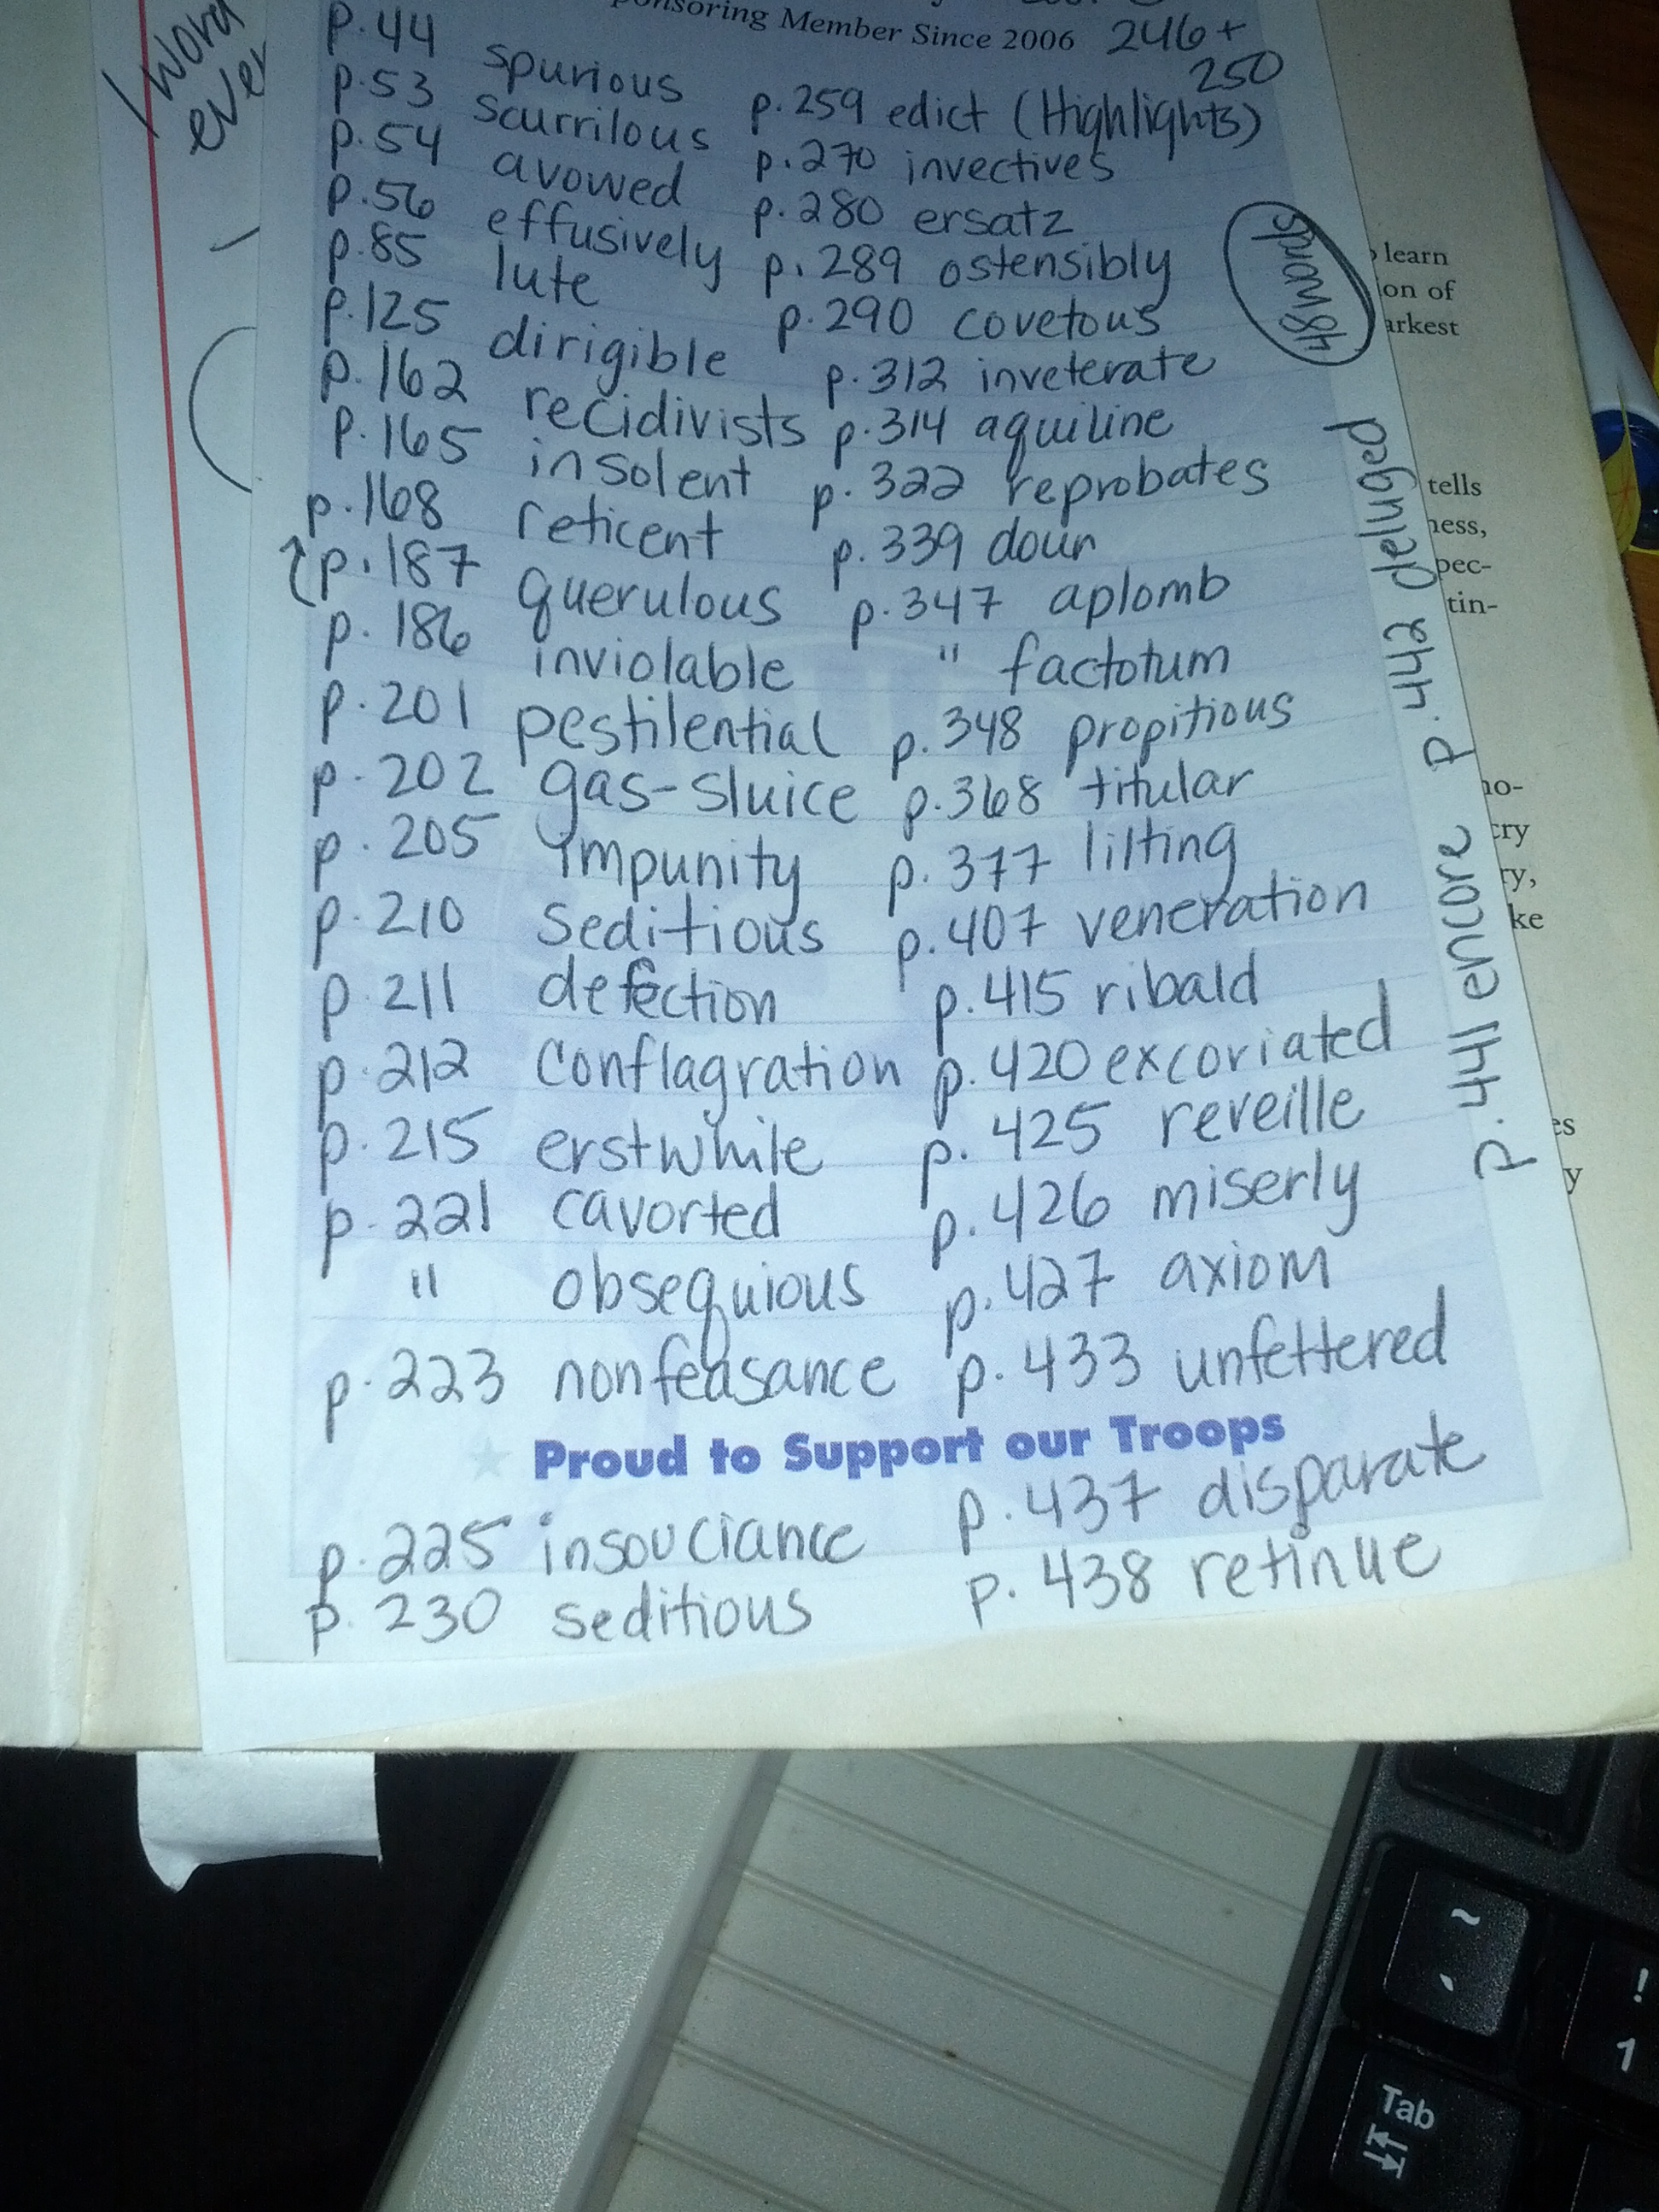 Sponsoring Member Since 2006
246+
250
p.44 spurious
p.53 scurrilous
p.54 avowed
p.56 effusively
p.85 lute
p.125 dirigible
p.162 recidivists
p.165 insolent
p.168 reticent
p.187 querulous
p.186 inviolable
p.201 pestilential
p.202 gas-sluice
p.205 impunity
p.210 seditious
p.211 defection
p.212 conflagration
p.215 erstwhile
p.221 cavorted
" obsequious
p.223 nonfeasance
p.259 edict (Highlights)
p.270 invectives
p.280 ersatz
p.289 ostensibly
p.290 covetous
p.312 inveterate
p.314 aquiline
p.322 reprobates
p.339 dour
p.347 aplomb
" factotum
p.348 propitious
p.368 titular
p.377 lilting
p.407 veneration
p.415 ribald
p.420 excoriated
p.425 reveille
p.426 miserly
p.427 axiom
p.433 unfettered
Proud to Support our Troops
p.225 insouciance
p.230 seditious
p.437 disparate
p.438 retinue
p.441 encore p.442 deluged
48 words
1 word
ever
learn
on of
arkest
tells
ness,
pec-
tin-
no-
cry
ry,
ke
es
y
~
!
1
Tab